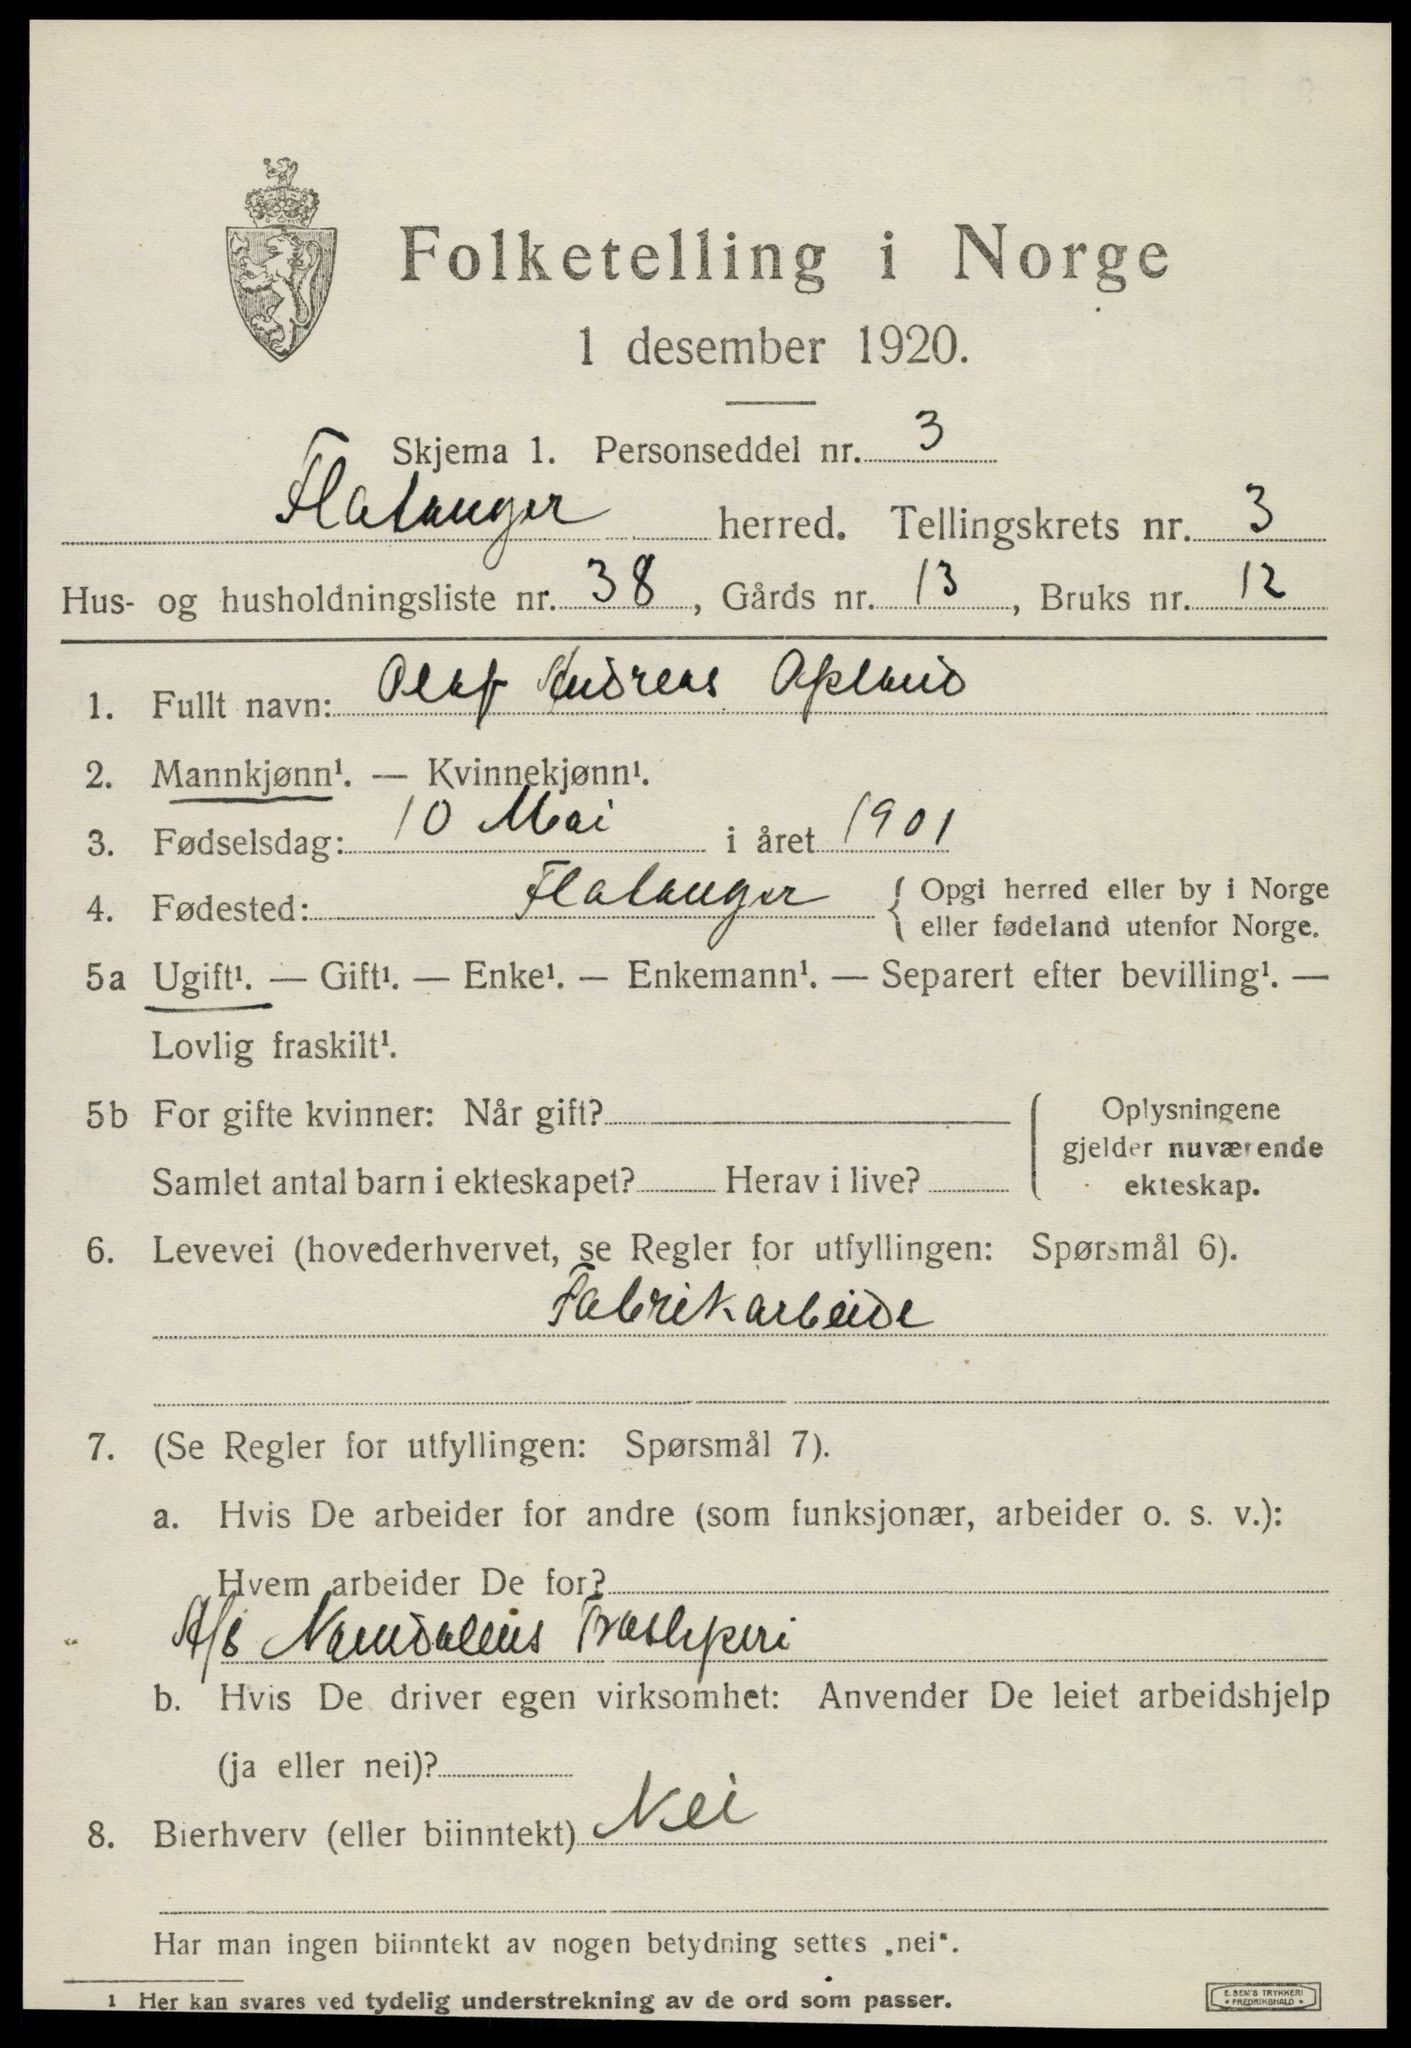 Folketelling i Norge
1 desember 1920.
Skjema 1. Personseddel nr. 3
Flatanger herred. Tellingskrets nr. 3
Hus- og husholdningsliste nr. 38, Gårds nr. 13, Bruks nr. 12
1. Fullt navn: Olaf Andreas
2. Mannkjønn¹. — Kvinnekjønn¹.
3. Fødselsdag: 10 Mai i året 1901
4. Fødested: Flatanger { Opgi herred eller by i Norge
eller fødeland utenfor Norge.
5a Ugift¹. — Gift¹. — Enke¹. — Enkemann¹. — Separert efter bevilling¹. —
Lovlig fraskilt¹.
5b For gifte kvinner: Når gift?
Samlet antal barn i ekteskapet? Herav i live?
Oplysningene
gjelder nuværende
ekteskap.
6. Levevei (hovederhvervet, se Regler for utfyllingen: Spørsmål 6).
Fabrikarbeide
7. (Se Regler for utfyllingen: Spørsmål 7).
a. Hvis De arbeider for andre (som funksjonær, arbeider o. s. v.):
Hvem arbeider De for?
A/S Namdalens Træsliperi
b. Hvis De driver egen virksomhet: Anvender De leiet arbeidshjelp
(ja eller nei)?
8. Bierhverv (eller biinntekt) Nei
Har man ingen biinntekt av nogen betydning settes „nei“.
1 Her kan svares ved tydelig understrekning av de ord som passer.
E. SEM'S TRYKKERI
FREDRIKSHALD